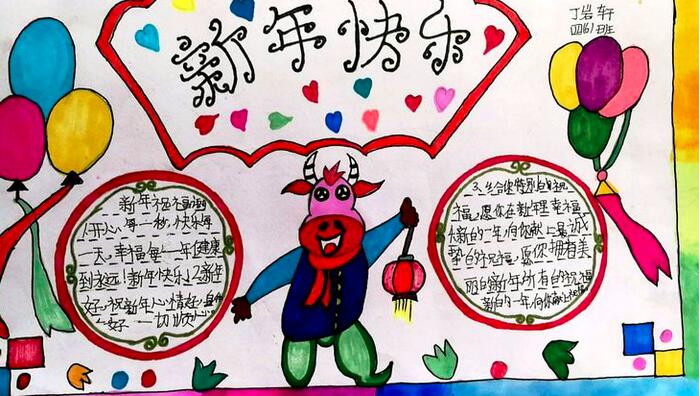 新年快乐
丁岩轩
四(6)班
新年祝福语
1开心每一秒,快乐每
一天,幸福每一年,健康
到永远!新年快乐!2新年
好,祝新年心情好,
好 一切顺心。
3、给你特别的祝
福,愿你在新年里幸福
新的一年,向你献上最诚
挚的祝福,愿你拥有美
丽的新年所有的祝福
新的一年,向你献上